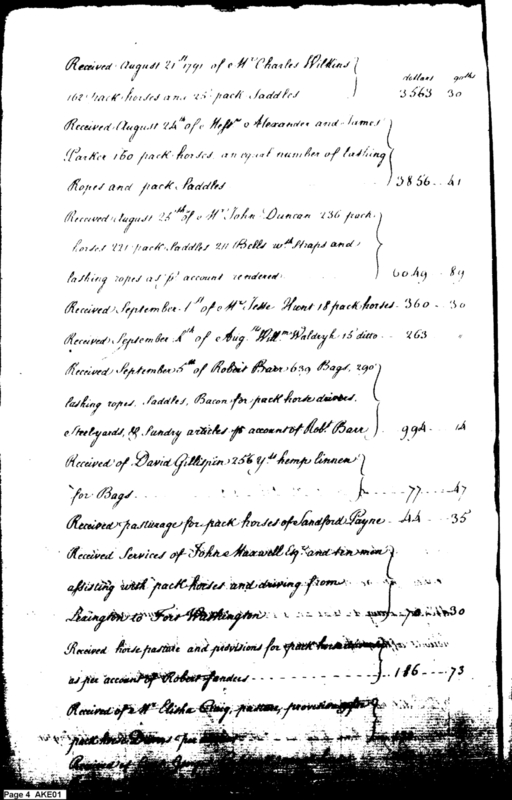 Received August 21st 1791 of Mr Charles Wilkins
dollars 90ths
162 pack horses and 25 pack Saddles 3563 30
Received August 24th of Messrs Alexander and James
Parker 160 pack horses, an equal number of lashing
Ropes and pack Saddles 3856 .. 41
Received August 25th of Mr John Duncan 236 pack
horses 221 pack Saddles 211 Bells wth Straps and
lashing ropes as pr account rendered 6049 .. 89
Received September 1st of Mr Jesse Hunt 18 pack horses 360 .. 30
Received September of Aug. Willm Waldryh 15 ditto 263 "
Received September 5th of Robert Barr 639 Bags, 290
lashing ropes, Saddles, Bacon for pack horse drivers,
Steelyards, & Sundry articles pr account of Robt Barr 994 .. 14
Received of David Gillispin 256 yds hemp linnen
for Bags 77 .. 47
Received pasturage for pack horses of Sandford Payne 44 .. 35
Received Services of John Maxwell Esqr and ten men
assisting with pack horses and driving from
Lexington to Fort Washington 70 30
Received horse pasture and provisions for pack horse
as per account of Robert Sanders 186 .. 73
Received of Mr Elisha Craig, pasture, provisions for
pack horse Drivers per
Received of
Page 4 AKE01